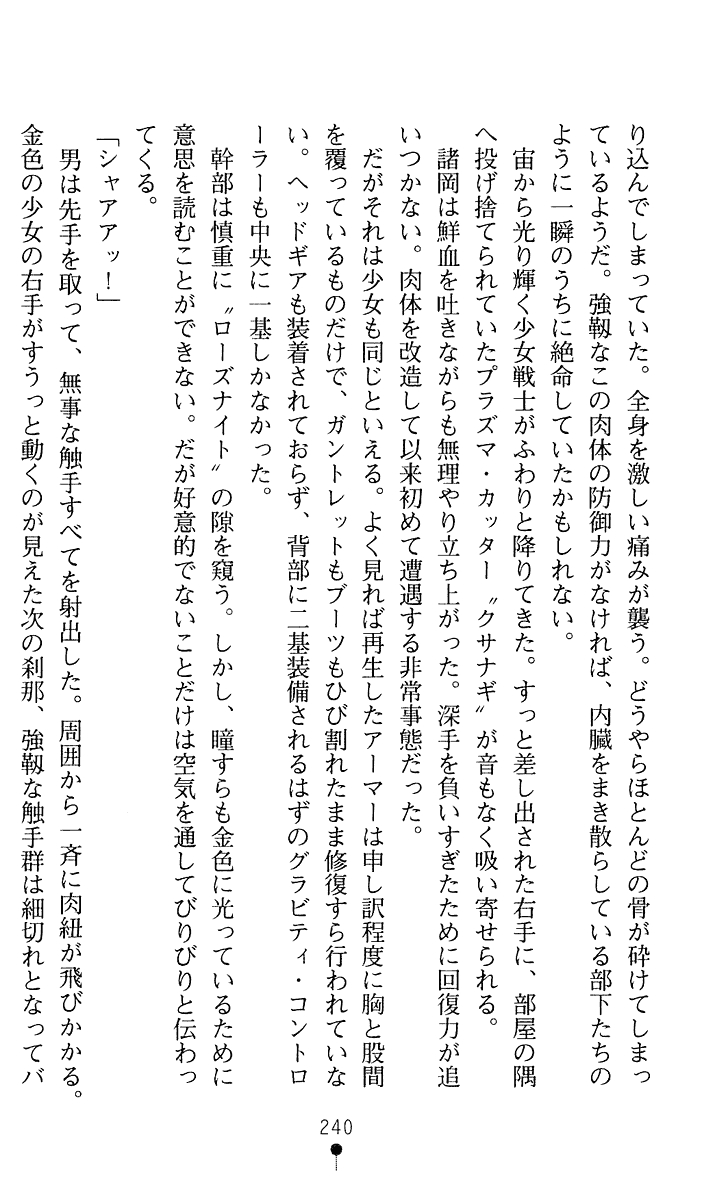 り込んでしまっていた。全身を激しい痛みが襲う。どうやらほとんどの骨が砕けてしまっ
ているようだ。強靱なこの肉体の防御力がなければ、内臓をまき散らしている部下たちの
ように一瞬のうちに絶命していたかもしれない。
　宙から光り輝く少女戦士がふわりと降りてきた。すっと差し出された右手に、部屋の隅
へ投げ捨てられていたプラズマ・カッター〝クサナギ〟が音もなく吸い寄せられる。
　諸岡は鮮血を吐きながらも無理やり立ち上がった。深手を負いすぎたために回復力が追
いつかない。肉体を改造して以来初めて遭遇する非常事態だった。
　だがそれは少女も同じといえる。よく見れば再生したアーマーは申し訳程度に胸と股間
を覆っているものだけで、ガントレットもブーツもひび割れたまま修復すら行われていな
い。ヘッドギアも装着されておらず、背部に二基装備されるはずのグラビティ・コントロ
ーラーも中央に一基しかなかった。
　幹部は慎重に〝ローズナイト〟の隙を窺う。しかし、瞳すらも金色に光っているために
意思を読むことができない。だが好意的でないことだけは空気を通してびりびりと伝わっ
てくる。
「シャアアッ！」
　男は先手を取って、無事な触手すべてを射出した。周囲から一斉に肉紐が飛びかかる。
金色の少女の右手がすうっと動くのが見えた次の刹那、強靱な触手群は細切れとなってバ
240